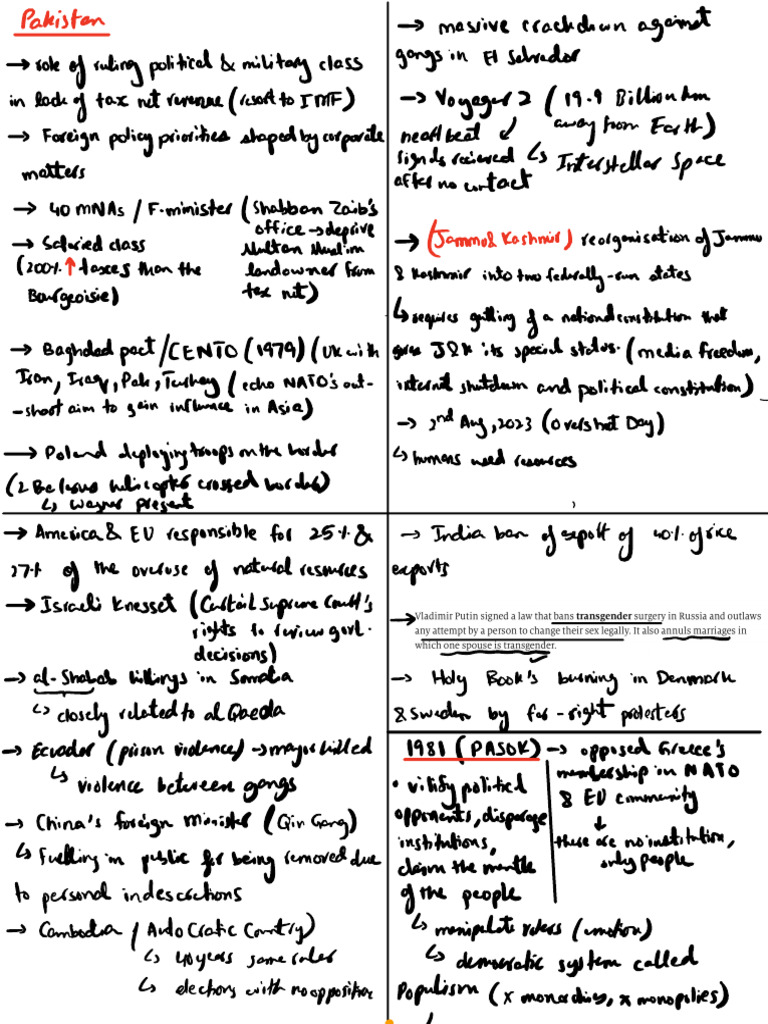 Pakistan
→ role of ruling political & military class
in lack of tax net revenue (resort to IMF)
→ Foreign policy priorities shaped by corporate
matters
→ 40 MNAs / F-minister (Shabban Zaib's
office → deprive
Multan
landowner from
tax net)
→ Salaried class
(200% ↑ taxes than the
Bourgeoisie)
→ Baghdad pact / CENTO (1979) (UK with
Iran, Iraq, Pak, Turkey (echo NATO's out-
-short aim to gain influence in Asia)
→ Poland deploying troops on the border
(2 Belarus helicopter crossed border)
↳ Wagner present
→ massive crackdown against
gangs in El Salvador
→ Voyager 2 (19.9 Billion km
away from Earth)
heartbeat
signals recieved
after no contact
↳ Interstellar Space
→ (Jammu & Kashmir) reorganisation of Jammu
& Kashmir into two federally-run states
↳ requires gutting of a national constitution that
gives J&K its special status. (media freedom,
internet shutdown and political constitution)
→ 2nd Aug, 2023 (Overshoot Day)
↳ humans used resources
→ America & EU responsible for 25% &
27% of the overuse of natural resources
→ Israeli Knesset (Curtail Supreme Court's
rights to review govt.
decisions)
→ al-Shabab killings in Somalia
↳ closely related to al Qaeda
→ Ecuador (prison violence) → mayor killed
↳ violence between gangs
→ China's foreign Minister (Qin Gang)
↳ Fuelling in public for being removed due
to personal indescretions
→ Cambodia / Auto Cratic Country)
↳ 40 years same ruler
↳ elections with no opposition
→ India ban of export of 40% of rice
exports
→ Vladimir Putin signed a law that bans transgender surgery in Russia and outlaws
any attempt by a person to change their sex legally. It also annuls marriages in
which one spouse is transgender.
→ Holy Book's burning in Denmark
& Sweden by far-right protesters
1981 (PASOK) → opposed Greece's
membership in NATO
& EU community
↓
there are no institution,
only people
• vilify political
opponents, disparage
institutions,
claim the mantle
of the people
↳ manipulate voters (emotion)
↳ democratic system called
Populism (x monarchies, x monopolies)